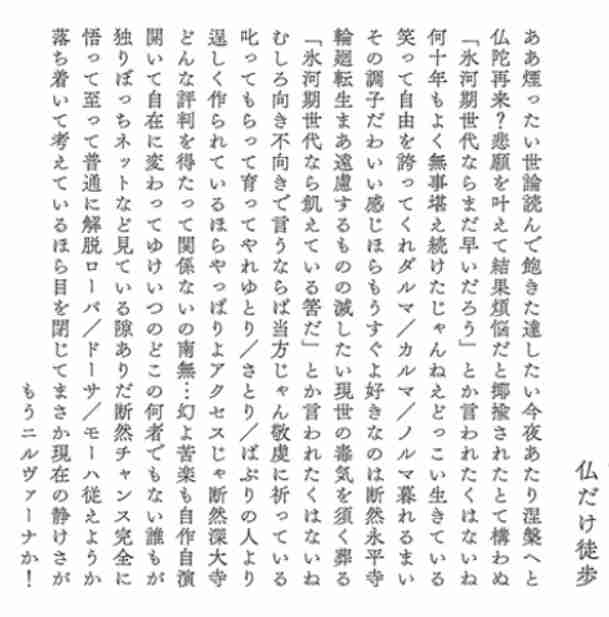 仏だけ徒歩
ああ煙ったい世論読んで飽きた達したい今夜あたり涅槃へと
仏陀再来？悲願を叶えて結果煩悩だと揶揄されたとて構わぬ
「氷河期世代ならまだ早いだろう」とか言われたくはないね
何十年もよく無事堪え続けたじゃんねえどっこい生きている
笑って自由を誇ってくれダルマ／カルマ／ノルマ暮れるまい
その調子だわいい感じほらもうすぐよ好きなのは断然永平寺
輪廻転生まあ遠慮するものの滅したい現世の毒気を須く葬る
「氷河期世代なら飢えている筈だ」とか言われたくはないね
むしろ向き不向きで言うならば当方じゃん敬虔に祈っている
叱ってもらって育ってやれゆとり／さとり／ばぶりの人より
逞しく作られているほらやっぱりよアクセスじゃ断然深大寺
どんな評判を得たって関係ないの南無…幻よ苦楽も自作自演
開いて自在に変わってゆけいつのどこの何者でもない誰もが
独りぼっちネットなど見ている隙ありだ断然チャンス完全に
悟って至って普通に解脱ローバ／ドーサ／モーハ従えようか
落ち着いて考えているほら目を閉じてまさか現在の静けさが
もうニルヴァーナか！